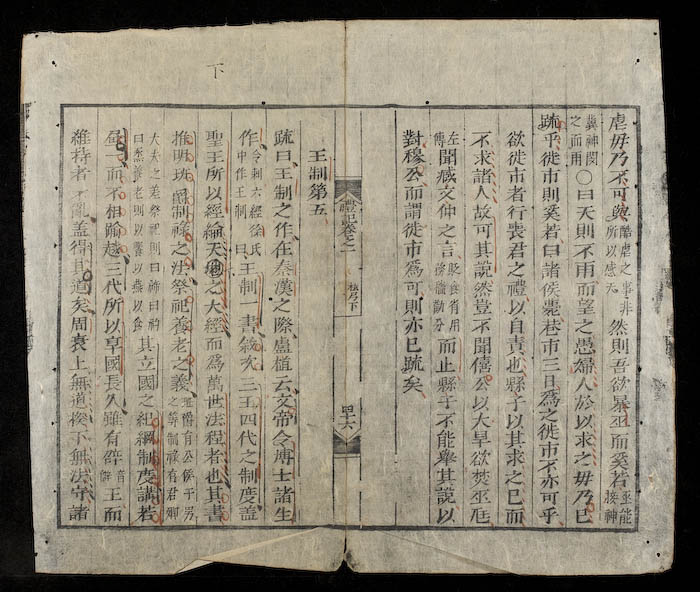 虐毋乃不可與酷虐之事非所以感天然則吾欲暴巫而奚若巫能接神
冀神閔之而雨〇曰天則不雨而望之愚婦人於以求之毋乃已
疏乎徙市則奚若曰諸侯薨巷市三日為之徙市不亦可乎
欲徙市者行喪君之禮以自責也縣子以其求之已而
不求諸人故可其說然豈不聞僖公以大旱欲焚巫尫
左傳聞臧文仲之言貶食省用務穡勸分而止縣子不能舉其說以
對穆公而謂徙市為可則亦已疏矣
禮記卷之一
檀弓下
四十六
下
王制第五
疏曰王制之作在秦漢之際盧植云文帝令博士諸生
作令刺六經作王制徐氏曰王制一書敘次三王四代之制度蓋
聖王所以經綸天地之大經而為萬世法程者也其書
推明班爵制祿之法祭祀養老之義班爵有公侯子男之等制祿有君卿
大夫之差祭祀則曰禘曰礿曰烝養老則以饗以燕以食其立國之紀綱制度講若
畫一而不相踰越三代所以享國長久雖有辟王而
維持者不亂蓋得其道矣周衰上無道揆下無法守諸